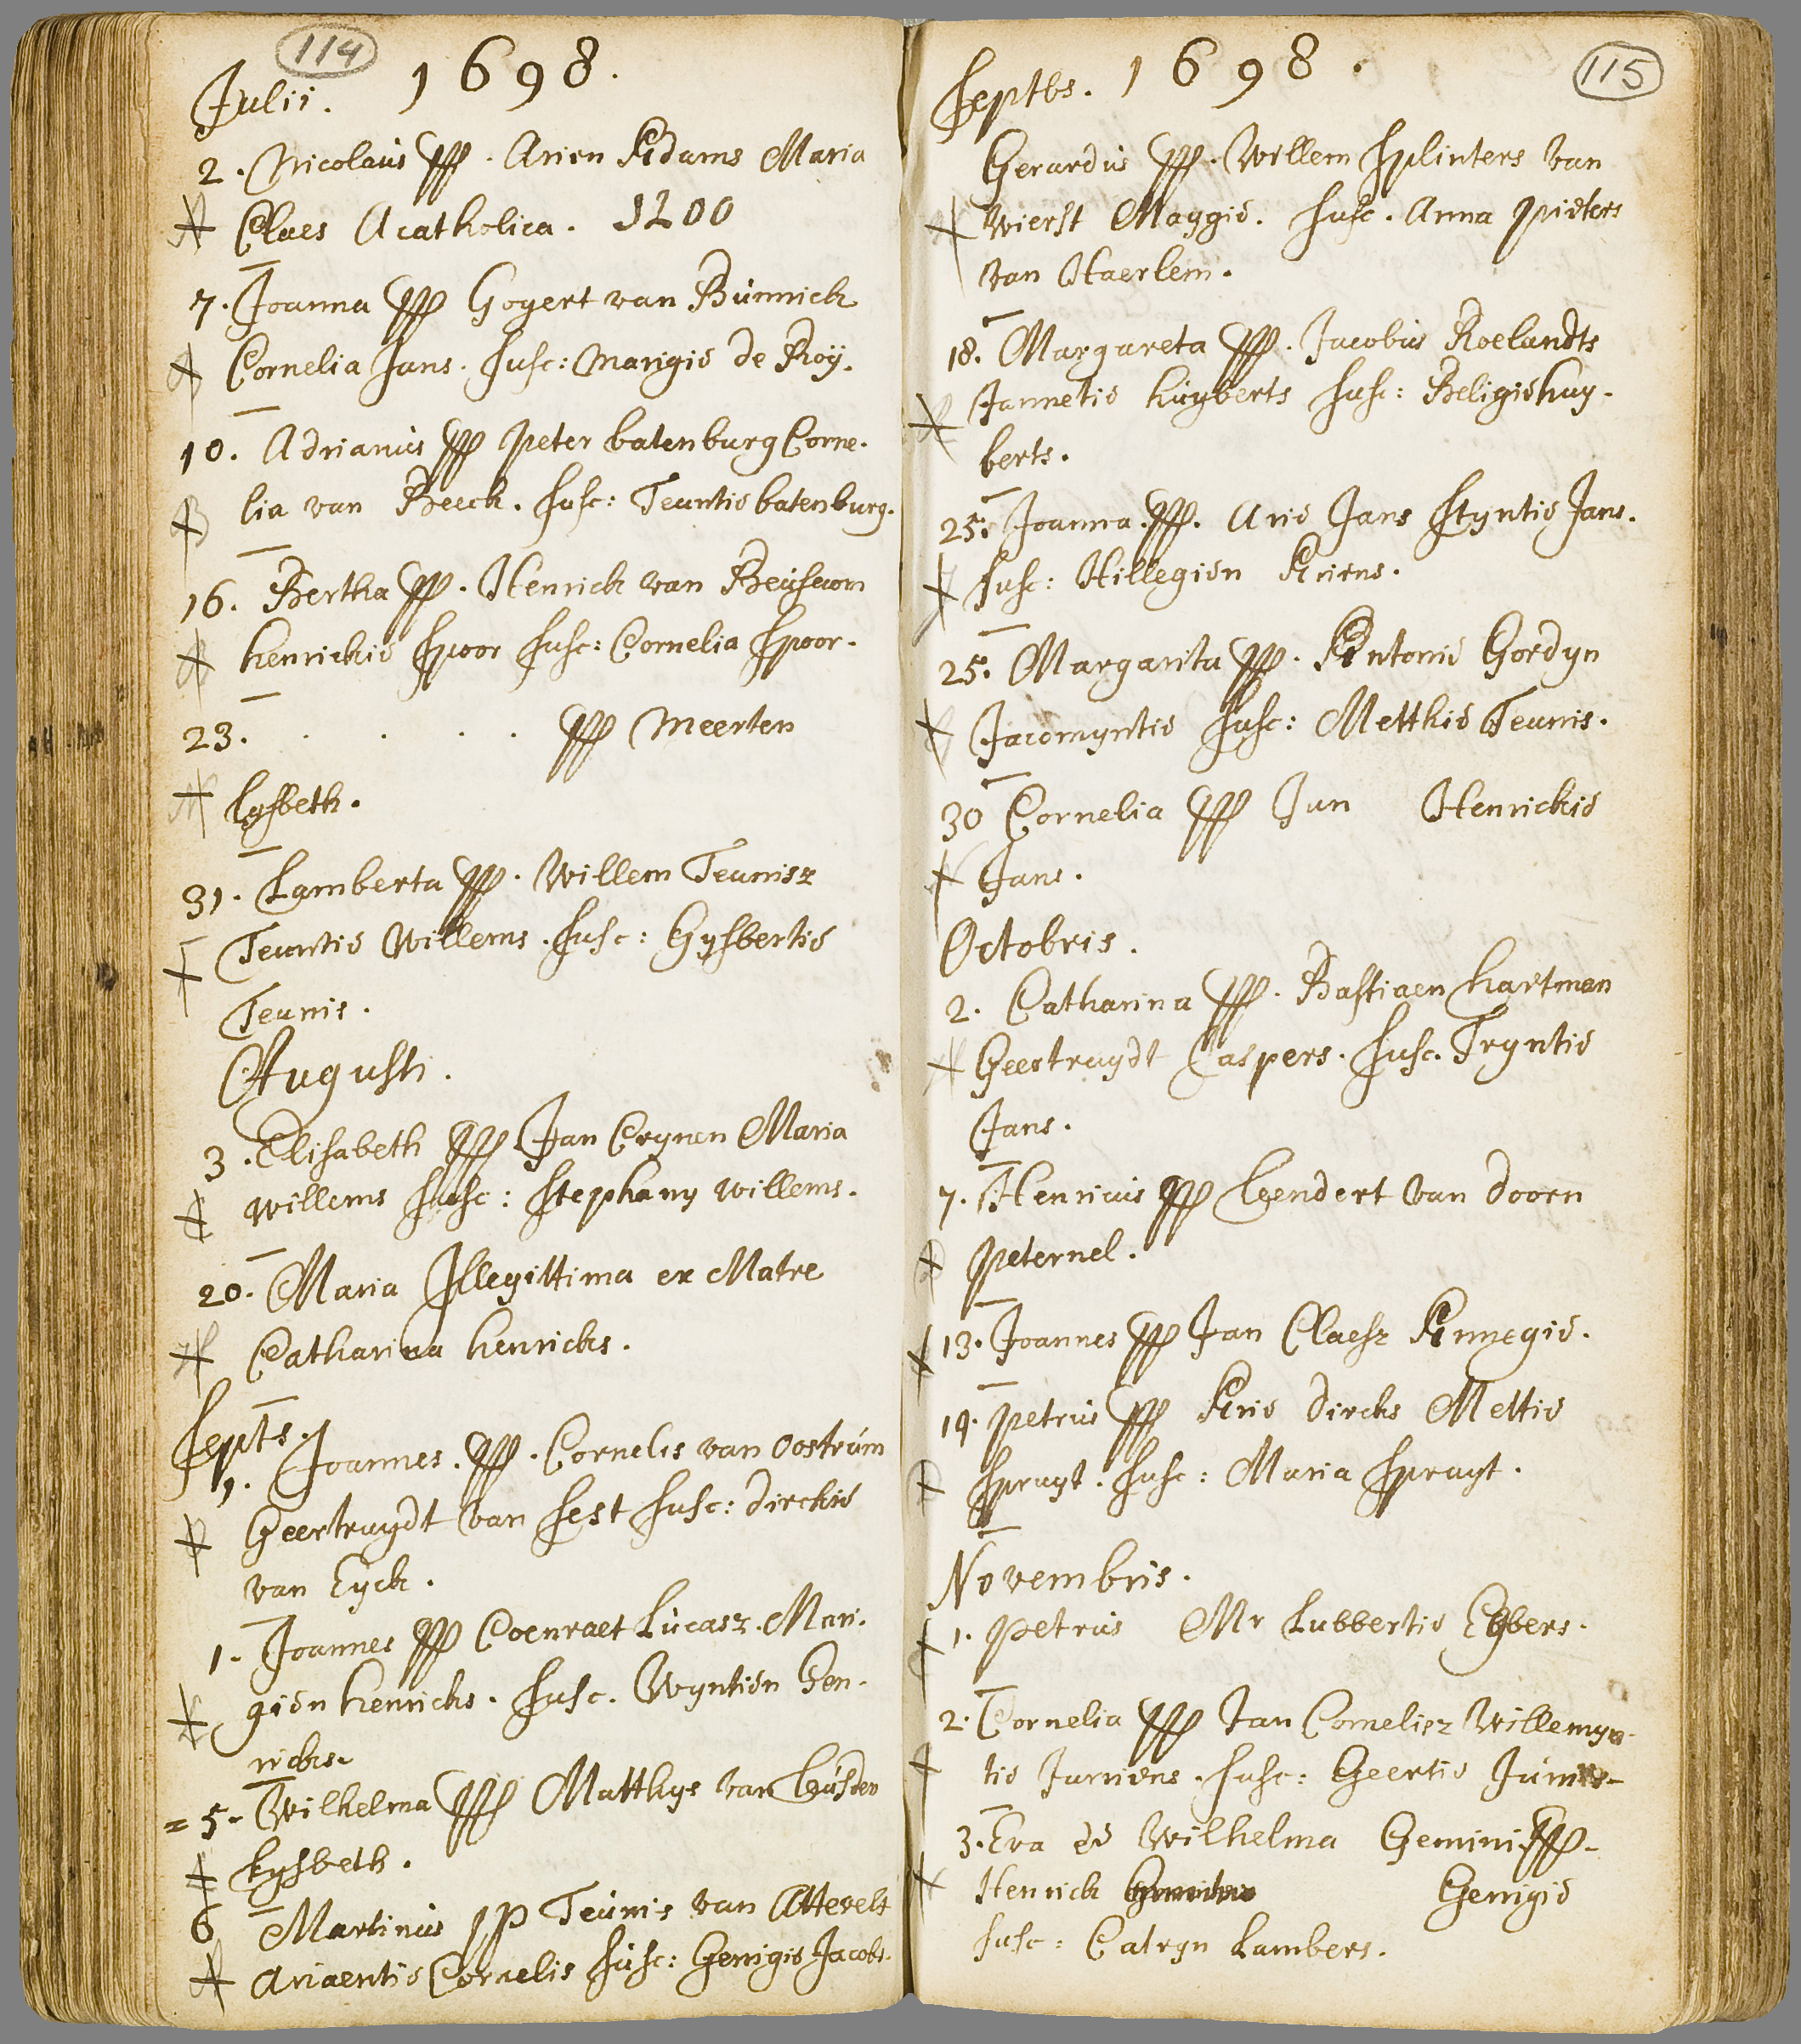 114
Julii. 1698.
2. Nicolaus PP. Arien Adams Maria
Claes Acatholica. 1200
7. Joanna PP Gogert van Bunnick
Cornelia Jans. susc: Marigie de Roÿ.
10. Adrianus PP Peter batenburg Corne-
lia van Beeck. susc: Teuntie batenburg.
16. Bertha PP. Henrick van Beusecom
henrickie Spoor susc: Cornelia Spoor.
23. . . . . PP Meerten
Lysbeth.
31. Lamberta PP. Willem Teunisz
Teuntie Willems. susc: Gysbertie
Teunis.
Augusti.
3. Elisabeth PP Jan Crynen Maria
willems susc: Stephany willems.
20. Maria Illegittima ex Matre
Catharina henricks.
Septs.
1. Joannes. PP. Cornelis van Oostrum
Geertruydt van Sest susc: dirckie
van Eyck.
1. Joannes PP Coenraet Lucasz. Mari-
gien henricks. susc. Wyntien Hen-
ricks.
= 5. Wilhelma PP Matthys van
Lysbeth.
6 Martinus PP Teunis van Attevelt
Ariaentie Cornelis susc: Gerrigie Jacobs.
115
Septbs. 1698.
Gerardus PP. Willem Splinters van
Wierst Maggie. susc. Anna Pieters
van Haerlem.
18. Margareta PP. Jacobus Roelandts
Jannetie huyberts susc: Beligie huy-
berts.
25. Joanna. PP. Arie Jans Styntie Jans.
susc: Hillegien Ariens.
25. Margarita PP. Antonie Gordyn
Jacomyntie susc: Metthie Teunis.
30 Cornelia PP Jan Henrickie
Jans.
Octobris.
2. Catharina PP. Bastiaen hartman
Geertruydt Caspers. susc. Tryntie
Jans.
7. Henricus PP Leendert van doorn
Peternel.
13. Joannes PP Jan Claesz Annegie.
19. Petrus PP Arie dircks Mettie
Spruyt. susc: Maria Spruyt.
Novembris.
1. Petrus Mr Lubbertie Egbers.
2. Cornelia PP Jan Cornelisz Willemyn-
tie Jurriens. susc: Geertie
3. Eva et Wilhelma Gemini PP.
Henrick Gerrigie
susc: Catryn Lambers.